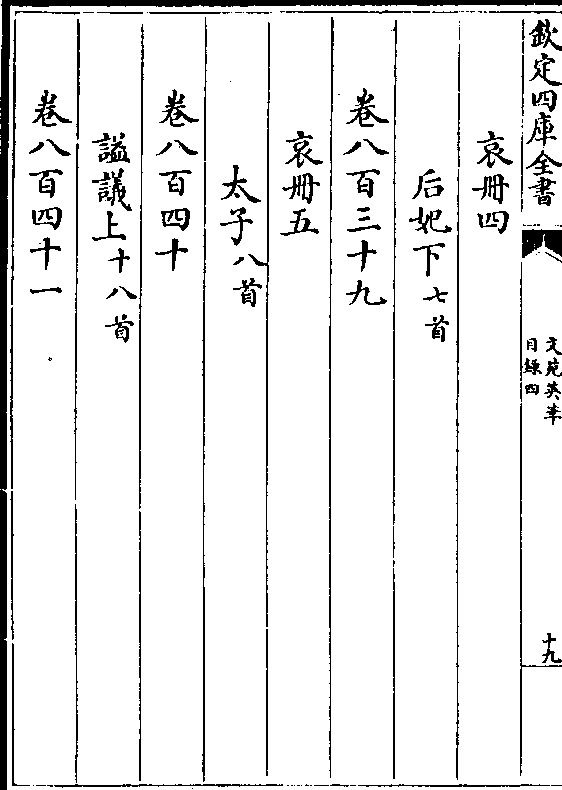 欽定四庫全書
文苑英華
目録四
十九
哀冊四
后妃下七首
卷八百三十九
哀冊五
太子八首
卷八百四十
謚議上十八首
卷八百四十一